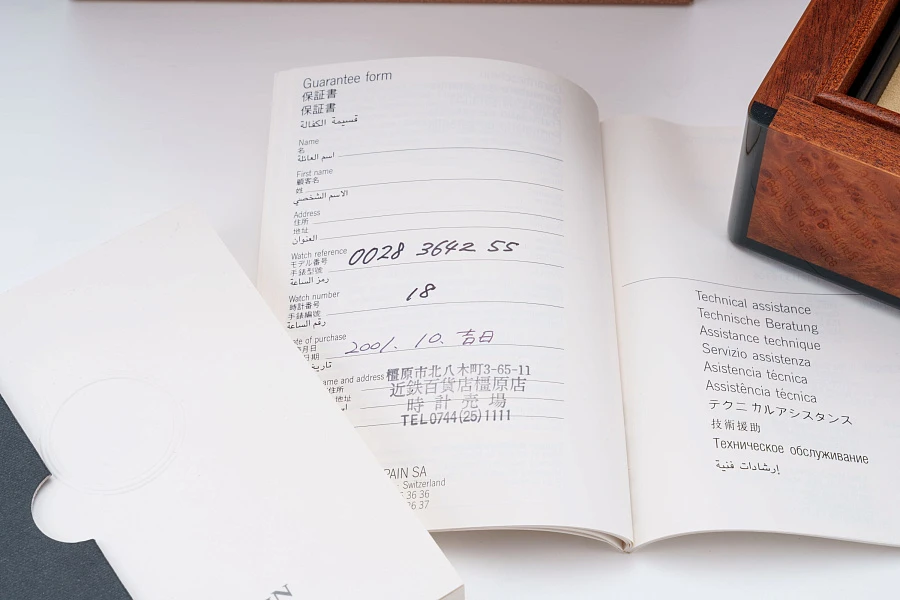 Guarantee form
保証書
保証書
قسيمة الكفالة
Name
名
اسم العائلة
First name
顧客名
姓
الاسم الشخصي
Address
住所
地址
العنوان
Watch reference
モデル番号
手錶型號
رمز الساعة
0028 3642 55
Watch number
時計番号
手錶編號
رقم الساعة
18
ate of purchase
月日
日期
تاريخ
2001. 10. 吉日
ame and address
住所
地址
橿原市北八木町3-65-11
近鉄百貨店橿原店
時計売場
TEL0744(25)1111
PAIN SA
Switzerland
36 36
36 37
Technical assistance
Technische Beratung
Assistance technique
Servizio assistenza
Asistencia técnica
Assistência técnica
テクニカルアシスタンス
技術援助
Техническое обслуживание
إرشادات فنية